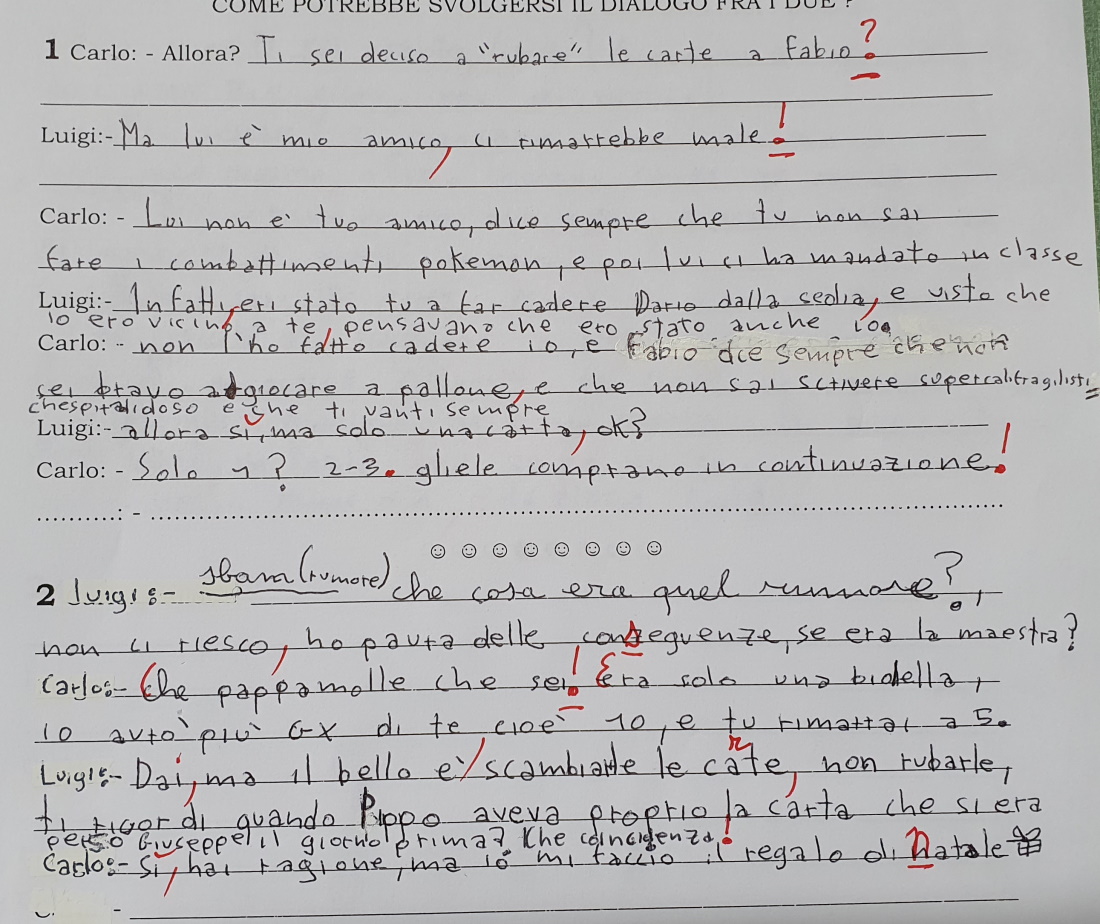 COME POTREBBE SVOLGERSI IL DIALOGO FRA I DUE ?
1 Carlo: - Allora? Ti sei deciso a "rubare" le carte a Fabio?
Luigi:- Ma lui è mio amico, ci rimarrebbe male!
Carlo: - Lui non è tuo amico, dice sempre che tu non sai
fare i combattimenti pokemon, e poi lui ci ha mandato in classe
Luigi:- Infatti, eri stato tu a far cadere Dario dalla sedia, e visto che
io ero vicino a te, pensavano che ero stato anche io.
Carlo: - non l'ho fatto cadere io, e Fabio dice sempre che non
sei bravo a giocare a pallone, e che non sai scrivere supercalifragilisti=
chespiralidoso e che ti vanti sempre
Luigi:- allora sì, ma solo una carta, ok?
Carlo: - Solo 1? 2-3. gliele comprano in continuazione!
..........: - ..........
☺ ☺ ☺ ☺ ☺ ☺ ☺ ☺
2 Luigi:- sbam (rumore) che cosa era quel rumore?,
non ci riesco, ho paura delle conseguenze, se era la maestra?
Carlo:- Che pappamolle che sei! Era solo una bidella,
io avrò più Gx di te, cioè 10, e tu rimarrai a 5.
Luigi:- Dai, ma il bello è scambiarle le carte, non rubarle,
ti ricordi quando Pippo aveva proprio la carta che si era
perso Giuseppe il giorno prima? Che coincidenza!
Carlo:- Sì, hai ragione, ma io mi faccio il regalo di Natale